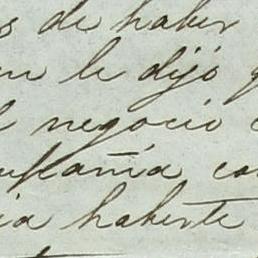 s de haber
en le dijo q
l negocio
ultania co
ia haberte